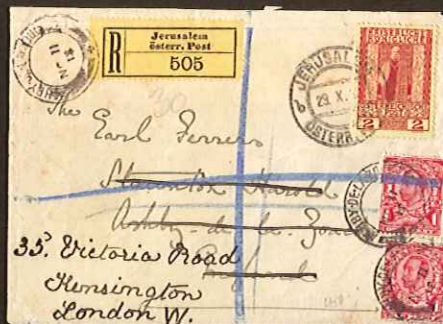 Jerusalem
österr. Post
R 505
JERUSALEM
29. X.
ÖSTERR.
2
The
Earl Ferrers
Staunton Harold
Ashby-de-la-Zouch
England
35. Victoria Road
Kensington
London W.